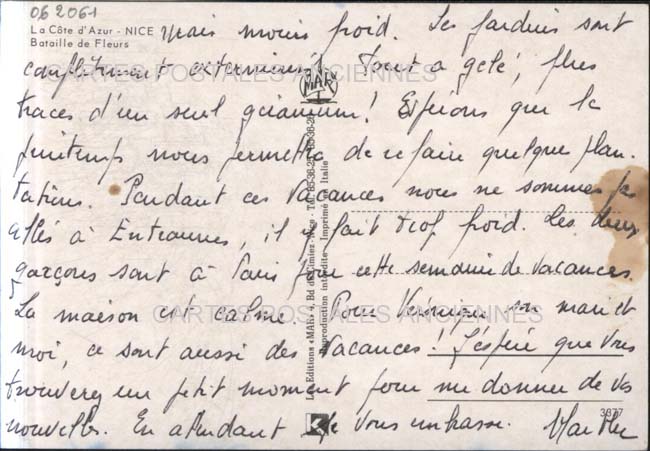 062061
La Côte d'Azur - NICE
Bataille de Fleurs
mais moins froid. Les jardins sont
complètement exterminés! Tout a gelé, plus
traces d'un seul géranium! Espérons que le
printemps nous permettra de refaire quelque plan-
tations. Pendant ces vacances nous ne sommes pas
allés à Entraunes, il y fait trop froid. Les deux
garçons sont à Paris pour cette semaine de vacances.
La maison est calme. Pour Véronique son mari et
moi, ce sont aussi des vacances! J'espère que vous
trouverez un petit moment pour me donner de vos
nouvelles. En attendant je vous embrasse.
CARTES POSTALES ANCIENNES
CARTES POSTALES ANCIENNES
MAR
Les Editions «MAR» 4, Bd de Cimiez-Nice - Tél. 85-36-20
Reproduction interdite - Imprimé en Italie
K
3377